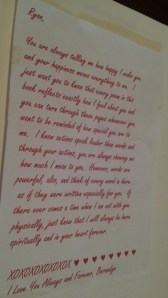 Ryan,
You are always telling me how happy I make you
and your happiness means everything to me. I
just want you to know that every poem in this
book reflects exactly how I feel about you and
you can turn through these pages whenever you
want to be reminded of how special you are to
me. I know actions speak louder than words and
through your actions, you are always showing me
how much I mean to you. However, words are
powerful, also, and think of every word in here
as if they were written especially for you. If
there ever comes a time when I am not with you
physically, just know that I will always be here
spiritually and in your heart forever.
XOXOXOXOXOXOX ♥ ♥ ♥ ♥ ♥ ♥ ♥
I Love You Always and Forever,